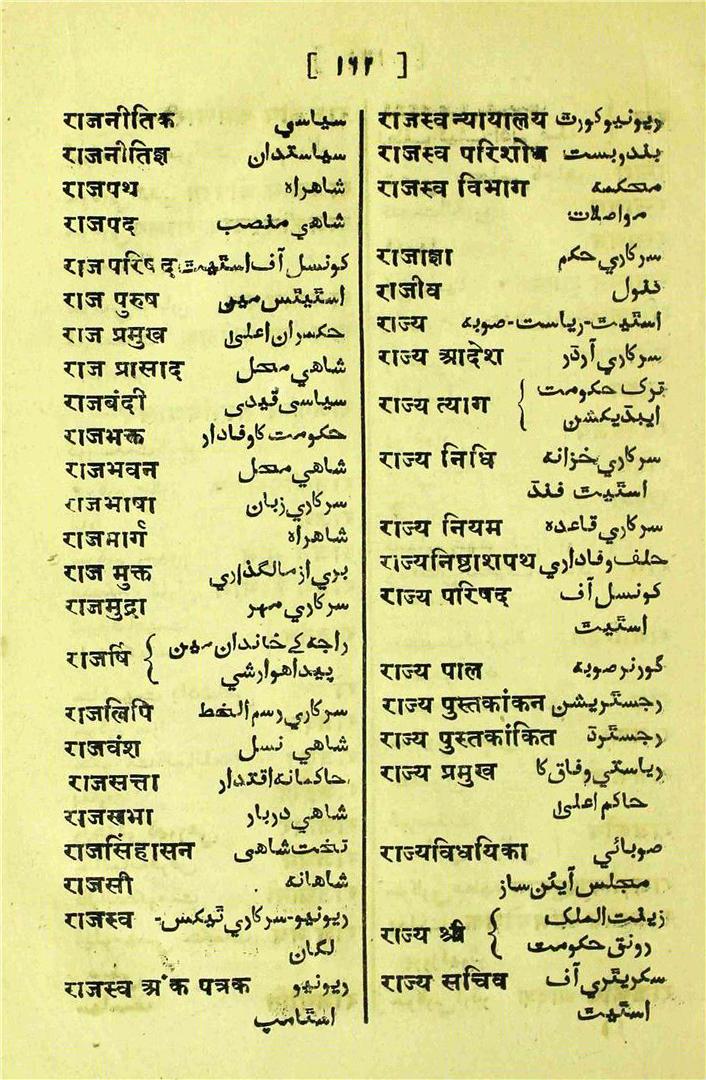 [ ۱۶۲ ]
राजनीतिक سیاسی
राजनीतिज्ञ سیاستدان
राजपथ شاهراه
राजपद شاهی منصب
राज परिषद کونسل آف اسٹیٹ
राज पुरुष اسٹیٹس مین
राज प्रमुख حکمران اعلیٰ
राज प्रासाद شاهی محل
राजबंदी سیاسی قیدی
राजभक्त حکومت کا وفادار
राजभवन شاهی محل
राजभाषा سرکاری زبان
राजमार्ग شاهراه
राज मुक्त بری از مالگذاری
राजमुद्रा سرکاری مهر
राजर्षि { راجه کے خاندان میں
پیدا هوا رشی
राजलिपि سرکاری رسم الخط
राजवंश شاهی نسل
राजसत्ता حاکمانه اقتدار
राजसभा شاهی دربار
राजसिंहासन تخت شاهی
राजसी شاهانه
राजस्व ریونیو-سرکاری ٹیکس-
لگان
राजस्व अंक पत्रक ریونیو
اسٹامپ
राजस्व न्यायालय ریونیو کورٹ
राजस्व परिशोध بندوبست
राजस्व विभाग محکمه
مواصلات
राजाज्ञा سرکاری حکم
राजीव
राज्य اسٹیٹ-ریاست-صوبه
राज्य आदेश سرکاری آرڈر
राज्य त्याग { ترک حکومت
ایبڈیکشن
राज्य निधि سرکاری خزانه
اسٹیٹ فنڈ
राज्य नियम سرکاری قاعده
राज्यनिष्ठाशपथ حلف وفاداری
राज्य परिषद کونسل آف
اسٹیٹ
राज्य पाल گورنر صوبه
राज्य पुस्तकांकन رجسٹریشن
राज्य पुस्तकांकित رجسٹرڈ
राज्य प्रमुख ریاستی وفاق کا
حاکم اعلیٰ
राज्यविधयिका صوبائی
مجلس آئین ساز
राज्य श्री { زینت الملک
رونق حکومت
राज्य सचिव سکریٹری آف
اسٹیٹ